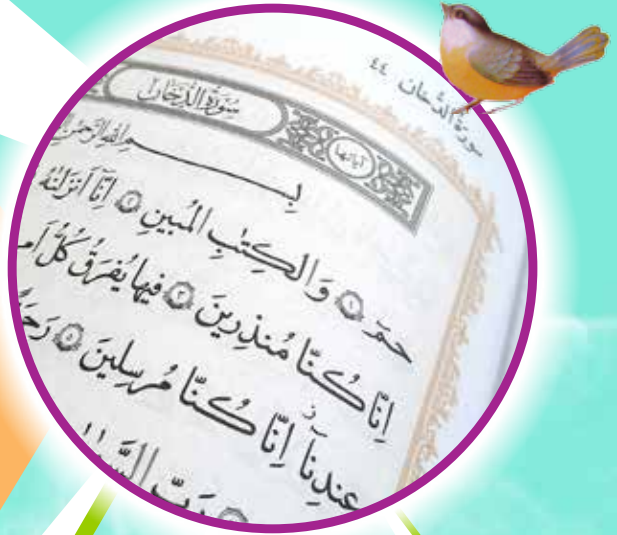 سورة الدخان ٤٤
سُورَةُ الدُّخَانِ
آياتها
بِسْمِ اللهِ الرَّحْمٰنِ
حمٓ ﴿١﴾ وَالْكِتٰبِ الْمُبِينِ ﴿٢﴾ اِنَّٓا اَنْزَلْنٰهُ
اِنَّا كُنَّا مُنذِرِينَ ﴿٣﴾ فِيهَا يُفْرَقُ كُلُّ
عِندِنَاۤ اِنَّا كُنَّا مُرسِلِينَ ﴿٥﴾
رَبِّ